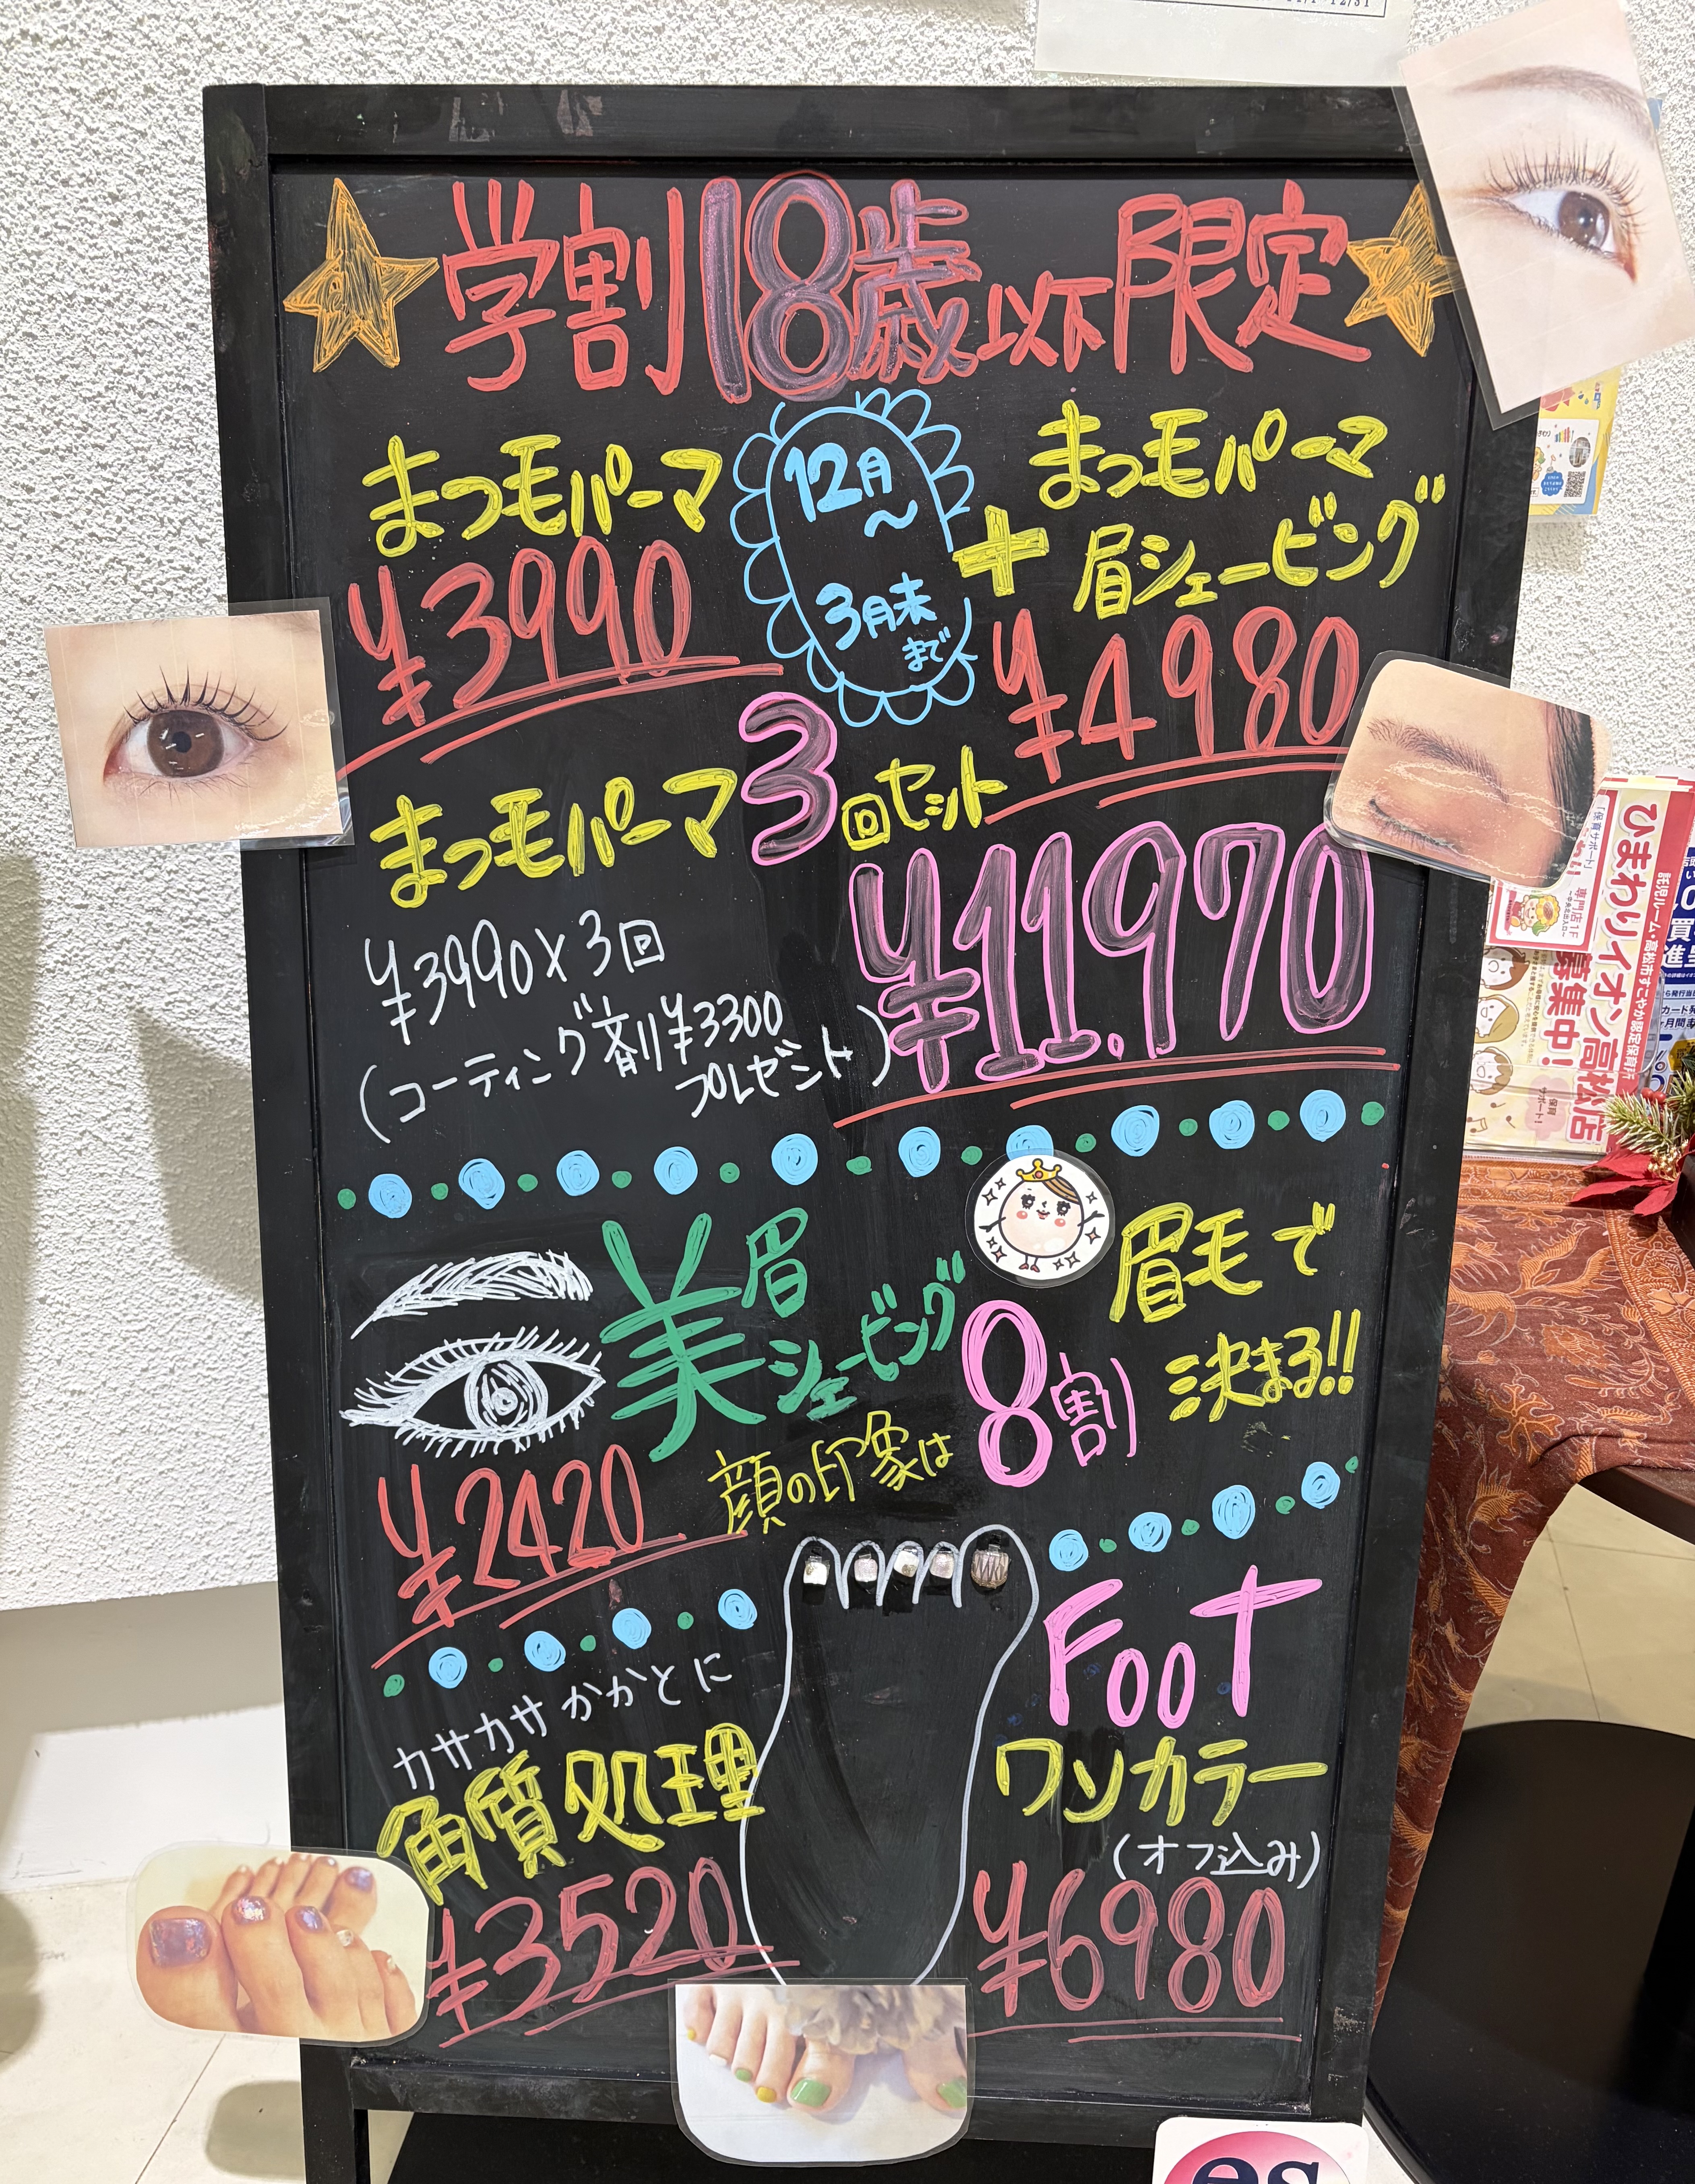 学割18歳以下限定
まつ毛パーマ
¥3990
12月
〜
3月末
まで
まつ毛パーマ
+ 眉シェービング
¥4980
まつ毛パーマ3回セット
¥3990×3回
(コーティング剤¥3300
プレゼント)
¥11.970
美眉
シェービング
¥2420
顔の印象は
8割
眉毛で
決まる!!
カサカサかかとに
角質処理
¥3520
FOOT
ワンカラー
(オフ込み)
¥6980
ひまわりイオン高松店
託児ルーム・高松市すこやか認定保育施
募集中!
専門店1F
es